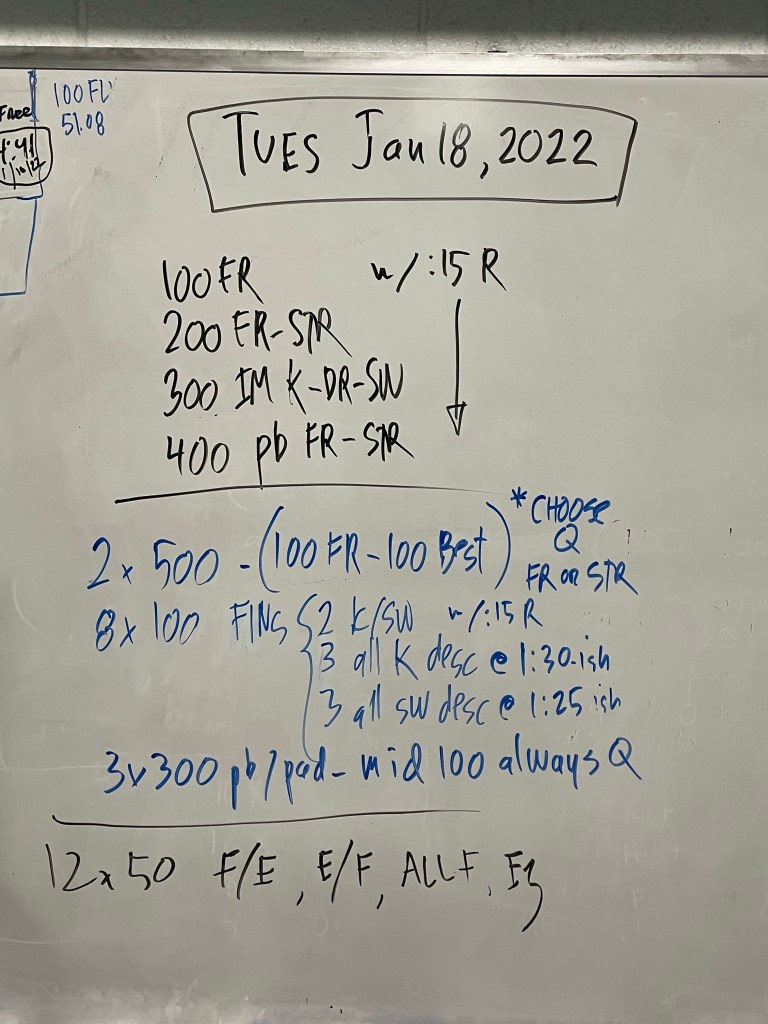 Free
100 FL
51.08
TUES Jan 18, 2022
100 FR w/:15 R
200 FR-STR
300 IM K-DR-SW
400 pb FR-STR
2 x 500 - (100 FR - 100 Best) * CHOOSE
Q
FR or STR
8 x 100 FINS { 2 K/SW w/:15 R
3 all K desc @ 1:30-ish
3 all sw desc @ 1:25 ish
3x300 pb/pad - mid 100 always Q
12 x 50 F/E, E/F, ALL F, Ez